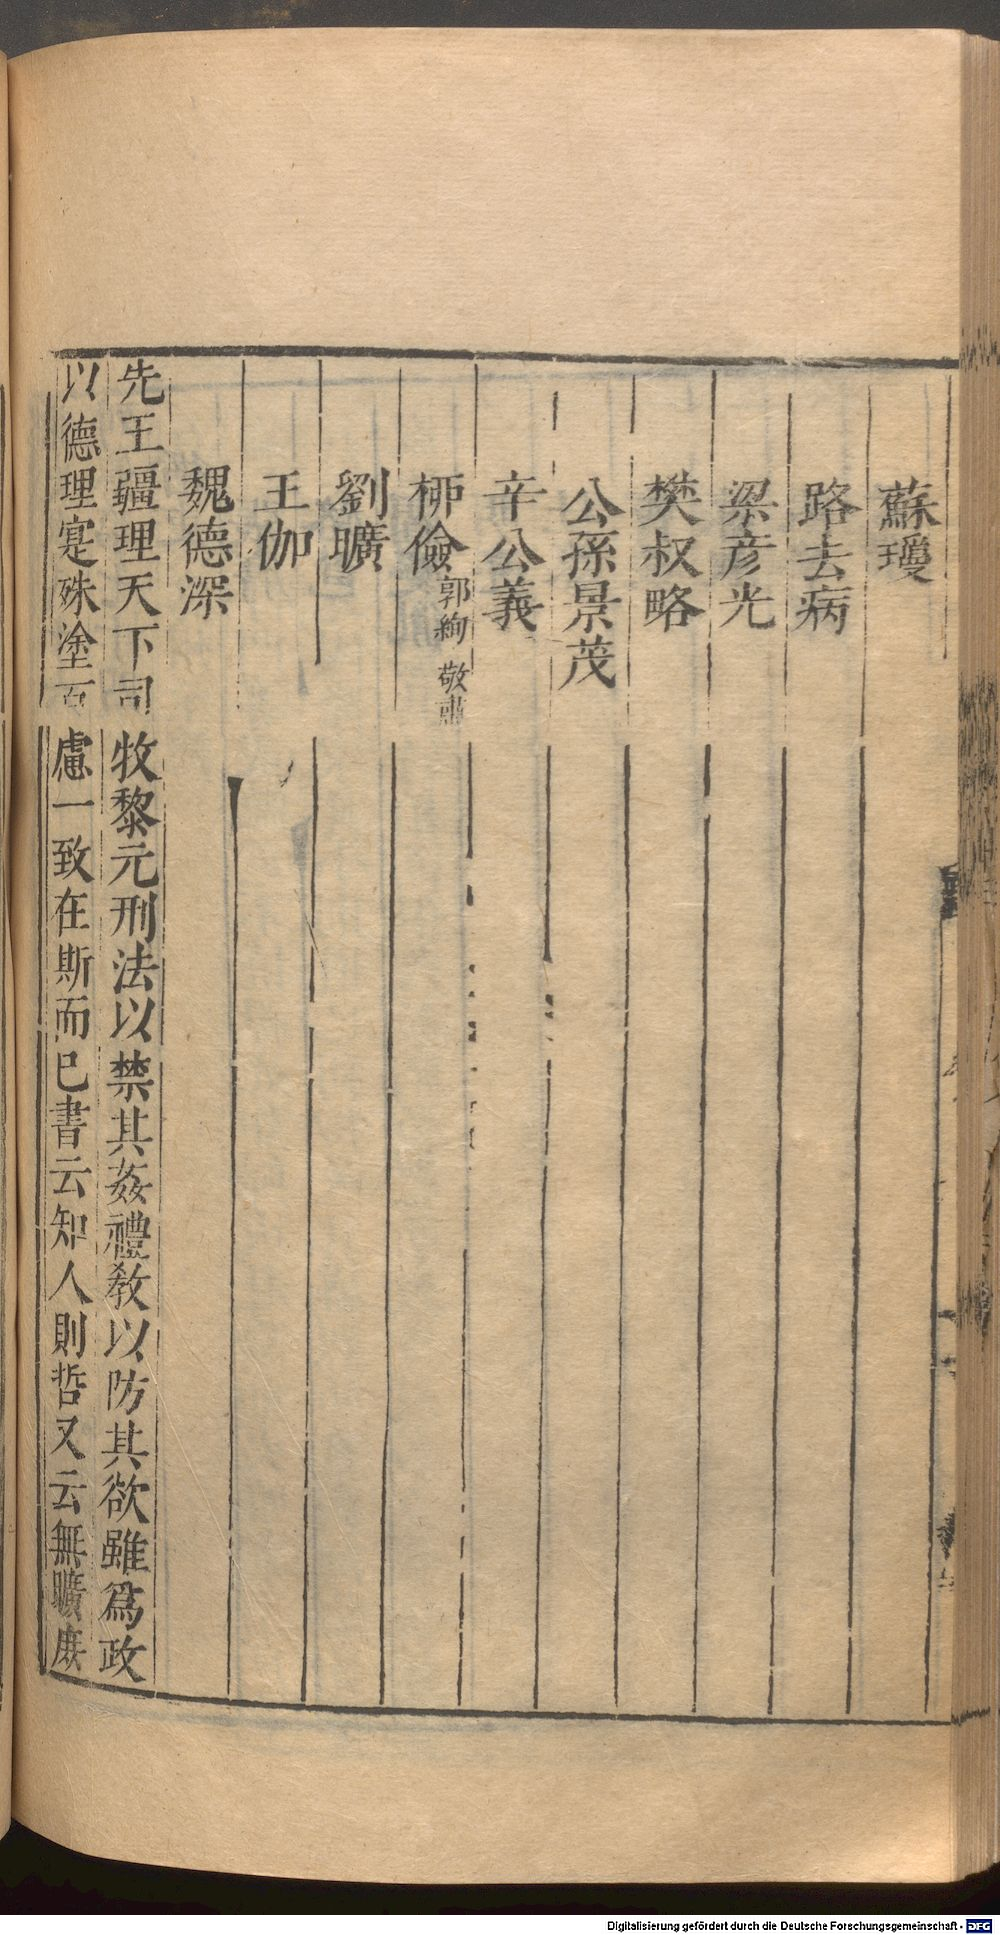 蘇瓊
路去病
梁彦光
樊叔略
公孫景茂
辛公義
柳儉 郭絢 敬肅
劉曠
王伽
魏德深
先王疆理天下司牧黎元刑法以禁其姦禮教以防其欲雖爲政
以德理寔殊塗百慮一致在斯而已書云知人則哲又云無曠庶
Digitalisierung gefördert durch die Deutsche Forschungsgemeinschaft - DFG